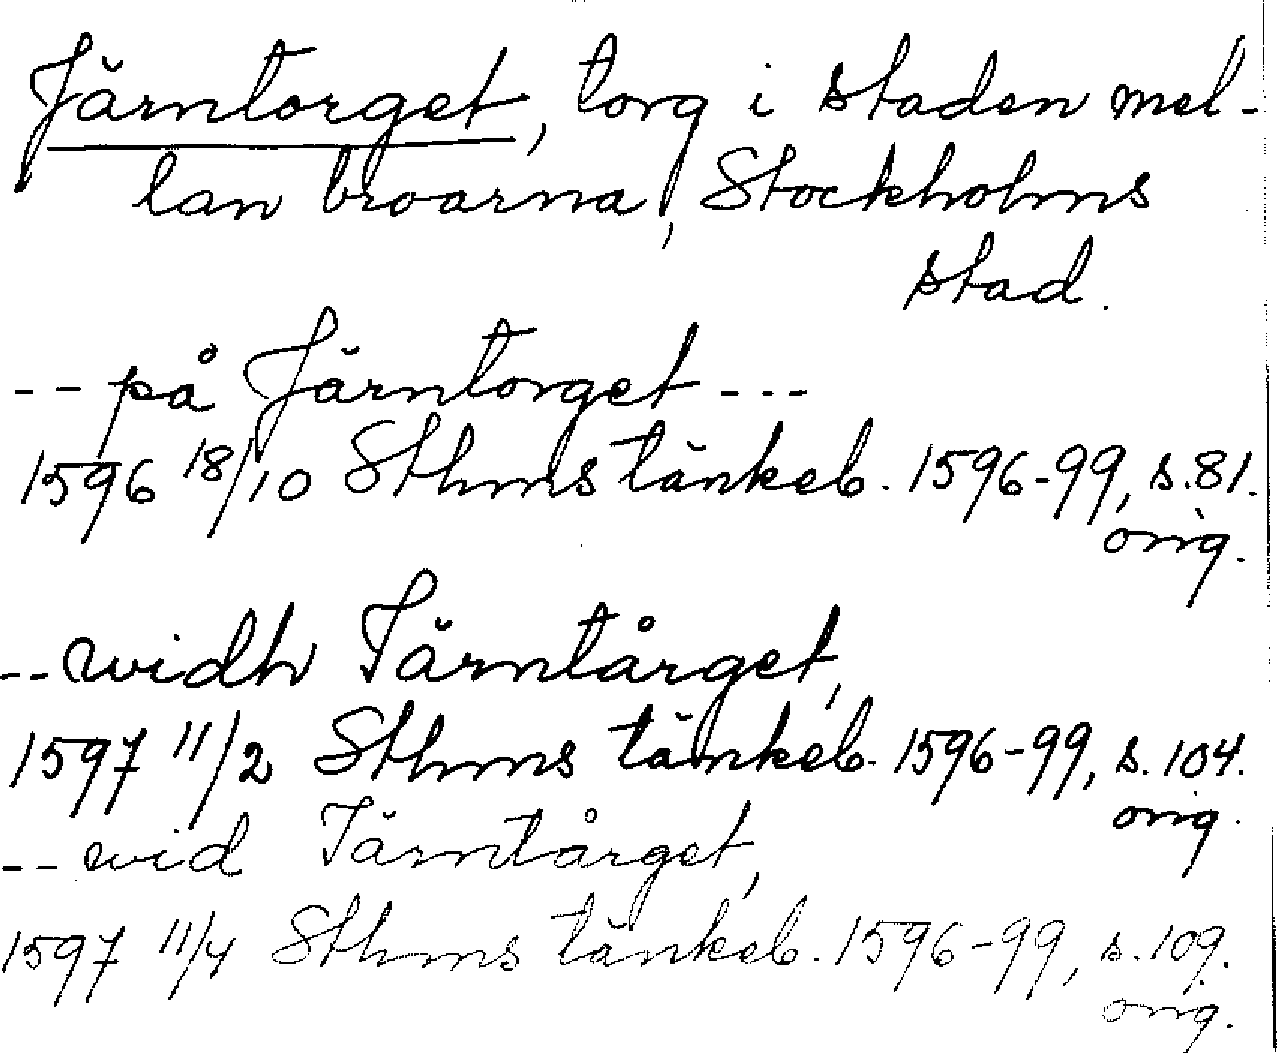 Järntorget, torg i staden mel-
lan broarna, Stockholms
stad.
-- på Järntorget ---
1596 18/10 Sthms tänkeb. 1596-99, s. 81.
orig.
-- widh Järntårget,
1597 11/2 Sthms tänkeb. 1596-99, s. 104.
orig.
-- wid Järntårget,
1597 11/4 Sthms tänkeb. 1596-99, s. 109.
orig.